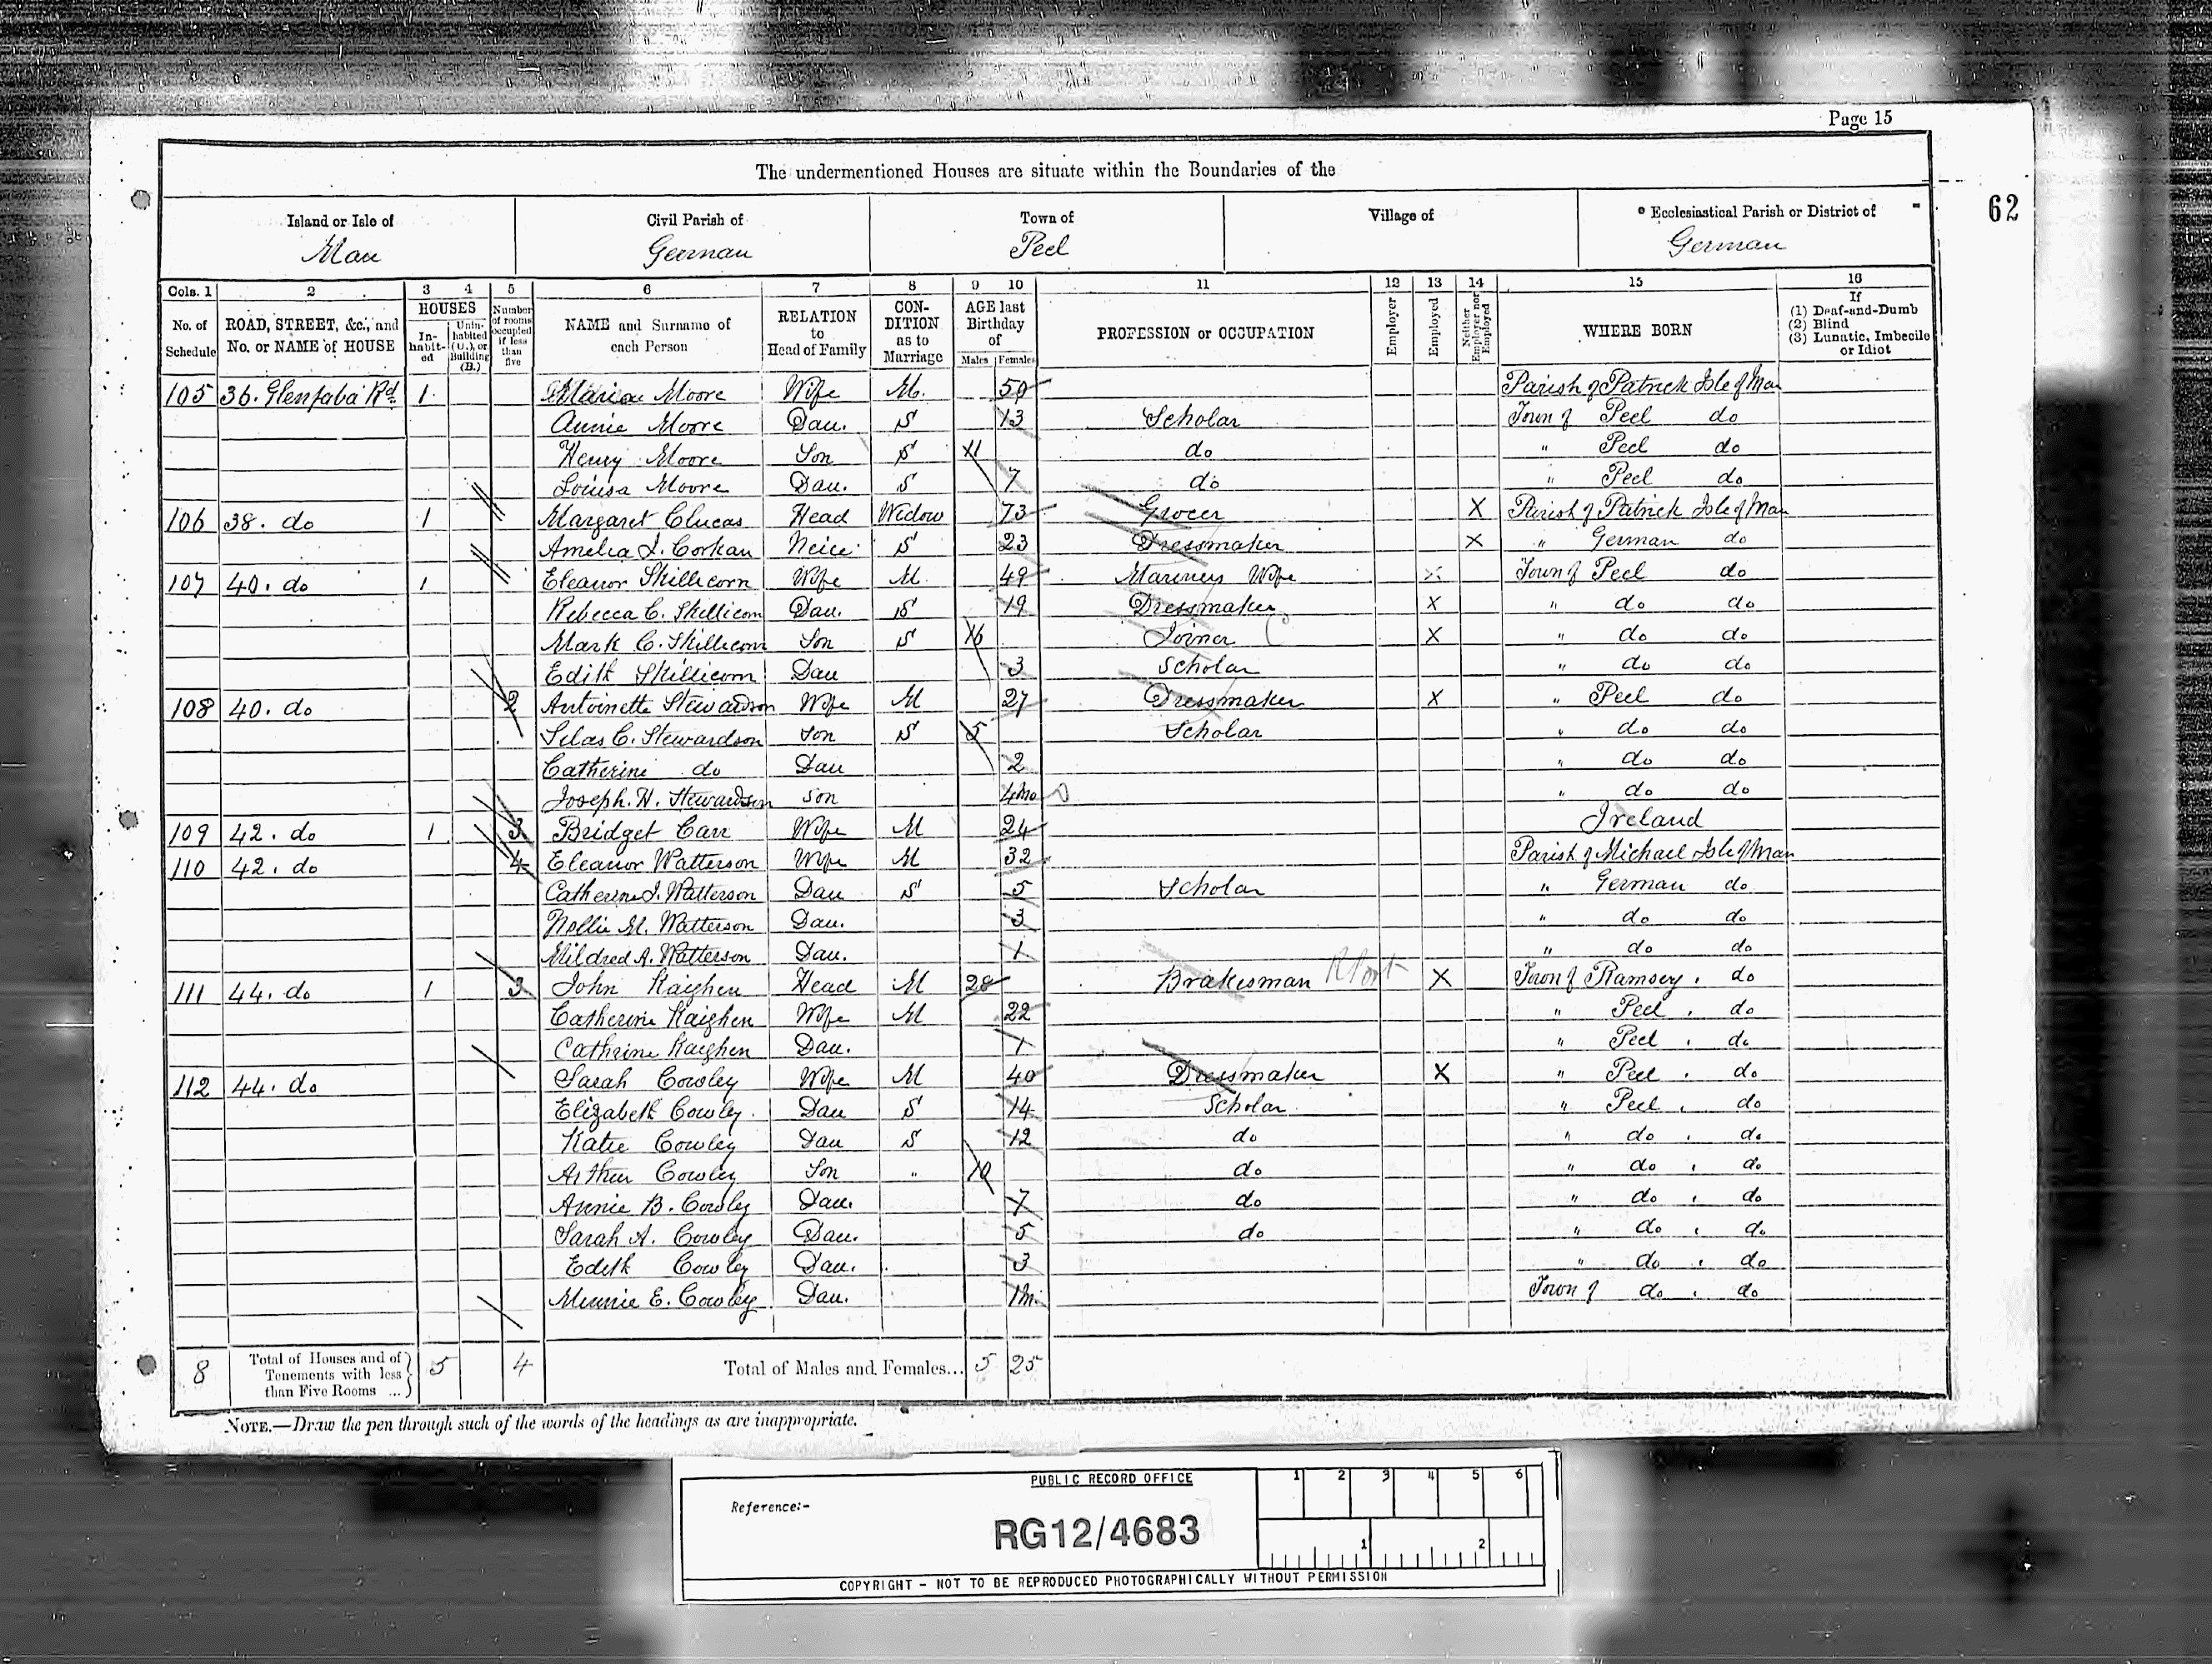 Page 15
The undermentioned Houses are situate within the Boundaries of the
62
Island or Isle of Civil Parish of Town of Village of Ecclesiastical Parish or District of
Man German Peel German
Cols. 1 2 3 4 5 6 7 8 9 10 11 12 13 14 15 16
No. of Schedule
ROAD, STREET, &c., and No. or NAME of HOUSE
HOUSES
In-habit-ed
Unin-habited (U.), or Building (B.)
Number of rooms occupied if less than five
NAME and Surname of each Person
RELATION to Head of Family
CON-DITION as to Marriage
AGE last Birthday of
Males Females
PROFESSION or OCCUPATION
Employer
Employed
Neither Employer nor Employed
WHERE BORN
If
(1) Deaf-and-Dumb
(2) Blind
(3) Lunatic, Imbecile or Idiot
105 36. Glenfaba Rd. 1 Moore Wife M. 50 Parish of Patrick Isle of Man
Annie Moore Dau. S 13 Scholar Town of Peel do
Henry Moore Son S 11 do " Peel do
Louisa Moore Dau. S 7 do " Peel do
106 38. do 1 Margaret Clucas Head Widow 73 Grocer X Parish of Patrick Isle of Man
Amelia J. Corkan Neice S 23 Dressmaker X " German do
107 40. do 1 Eleanor Skillicorn Wife M 49 Mariners Wife X Town of Peel do
Rebecca C. Skillicorn Dau. S 19 Dressmaker X " do do
Mark C. Skillicorn Son S 16 Joiner X " do do
Edith Skillicorn Dau 3 Scholar " do do
108 40. do 2 Antoinette Stewardson Wife M 27 Dressmaker X " Peel do
Silas C. Stewardson Son S 5 Scholar " do do
Catherine do Dau 2 " do do
Joseph. H. Stewardson Son 4mo " do do
109 42. do 1 3 Bridget Carr Wife M 24 Ireland
110 42. do 4 Eleanor Watterson Wife M 32 Parish of Michael Isle of Man
Catherine J. Watterson Dau S 5 Scholar " German do
Nellie M. Watterson Dau. 3 " do do
Mildred A. Watterson Dau. 1 " do do
111 44. do 1 3 John Kaighen Head M 28 Brakesman X Town of Ramsey. do
Catherine Kaighen Wife M 22 " Peel. do
Cathrine Kaighen Dau. 1 " Peel. do
112 44. do Sarah Cowley Wife M 40 Dressmaker X " Peel. do
Elizabeth Cowley. Dau S 14 Scholar " Peel. do
Katie Cowley Dau S 12 do " do. do
Arthur Cowley Son " 10 do " do. do
Annie B. Cowley Dau. 7 do " do. do
Sarah A. Cowley Dau. 5 do " do. do
Edith Cowley Dau. 3 " do. do
Minnie E. Cowley. Dau. 1m. Town of do. do
8 Total of Houses and of Tenements with less than Five Rooms ... 5 4 Total of Males and Females... 5 25
NOTE.—Draw the pen through such of the words of the headings as are inappropriate.
PUBLIC RECORD OFFICE
1 2 3 4 5 6
Reference:-
RG12/4683
1 2
COPYRIGHT - NOT TO BE REPRODUCED PHOTOGRAPHICALLY WITHOUT PERMISSION